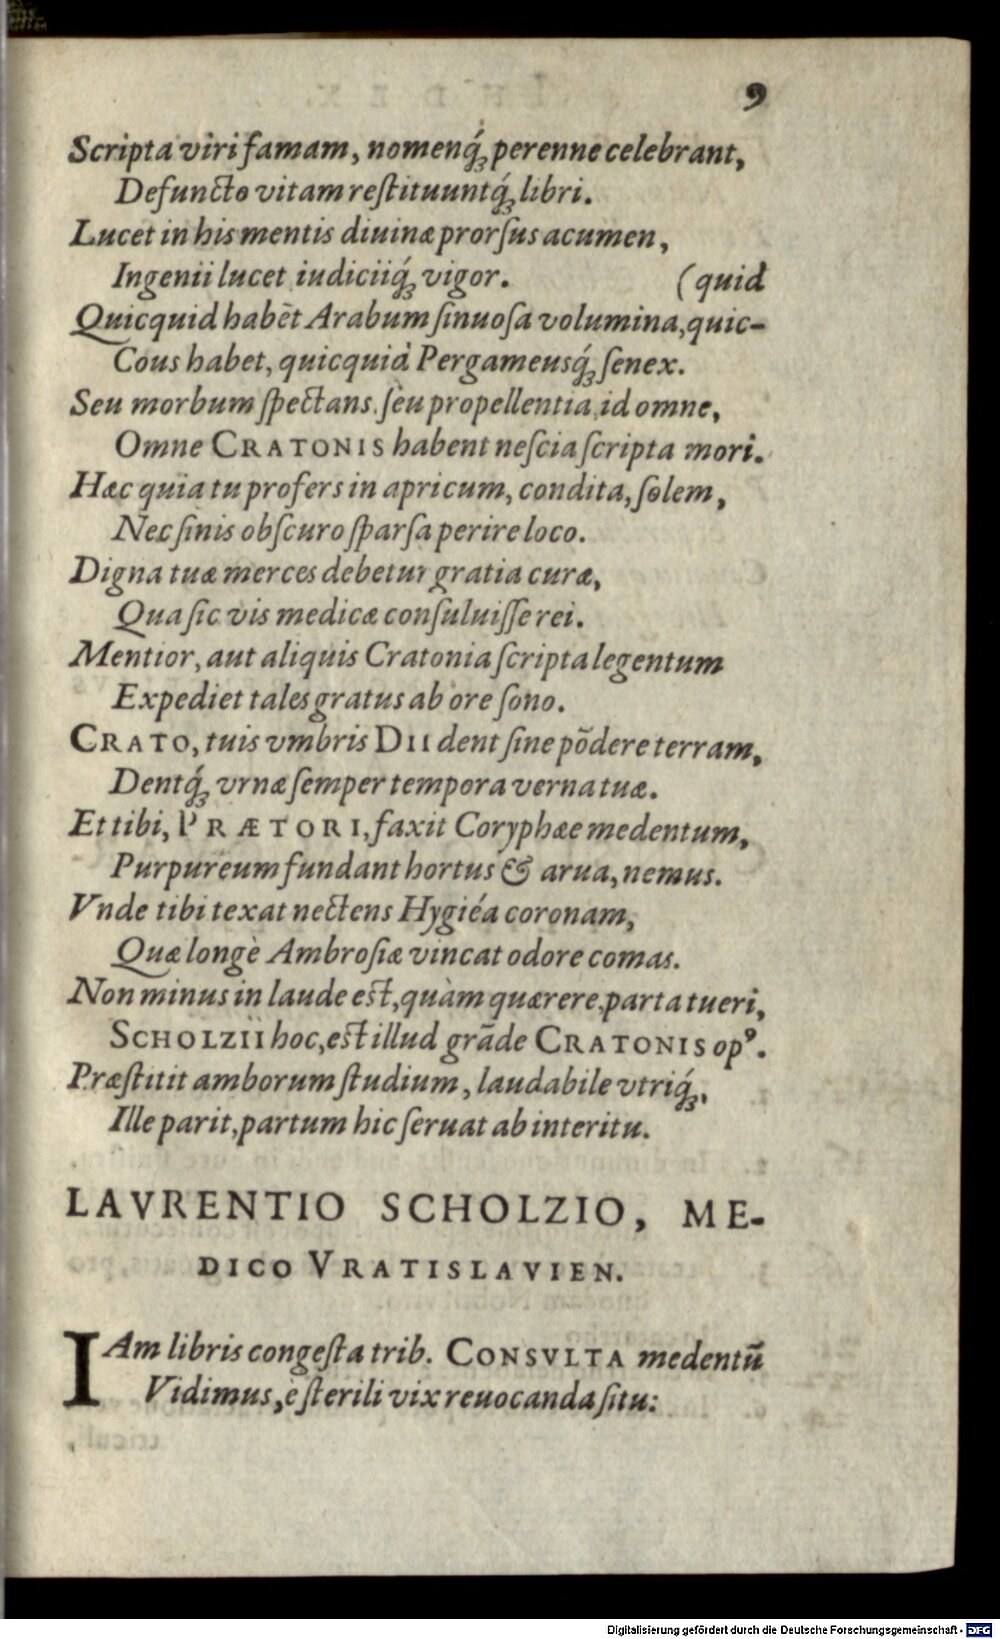 9
Scripta viri famam, nomenq́ꝫ perenne celebrant,
Defuncto vitam reſtituuntq́ꝫ libri.
Lucet in his mentis diuinæ prorſus acumen,
Ingenii lucet iudiciiq́ꝫ vigor. (quid
Quicquid habẽt Arabum ſinuoſa volumina, quic-
Cous habet, quicquid Pergameusq́ꝫ ſenex.
Seu morbum ſpectans. ſeu propellentia id omne,
Omne CRATONIS habent neſcia ſcripta mori.
Hæc quia tu profers in apricum, condita, ſolem,
Nec ſinis obſcuro ſparſa perire loco.
Digna tuæ merces debetur gratia curæ,
Qua ſic vis medicæ conſuluiſſe rei.
Mentior, aut aliquis Cratonia ſcripta legentum
Expediet tales gratus ab ore ſono.
CRATO, tuis vmbris DII dent ſine põdere terram,
Dentq́ꝫ vrnæ ſemper tempora verna tuæ.
Et tibi, PRÆTORI, faxit Coryphæe medentum,
Purpureum fundant hortus & arua, nemus.
Vnde tibi texat nectens Hygiéa coronam,
Quæ longè Ambroſiæ vincat odore comas.
Non minus in laude eſt, quàm quærere, parta tueri,
SCHOLZII hoc, eſt illud grãde CRATONIS opꝰ.
Præſtitit amborum ſtudium, laudabile vtriq́ꝫ,
Ille parit, partum hic ſeruat ab interitu.
LAVRENTIO SCHOLZIO, ME-
DICO VRATISLAVIEN.
IAm libris congeſta trib. CONSVLTA medentũ
Vidimus, è ſterili vix reuocanda ſitu:
Digitalisierung gefördert durch die Deutsche Forschungsgemeinschaft - DFG